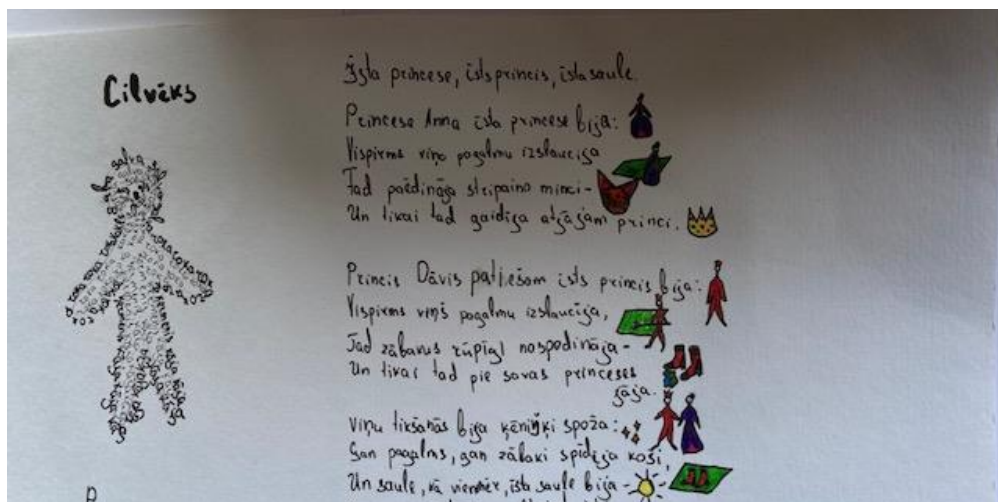 Cilvēks
Īsta princese, īsts princis, īsta saule.
Princese Anna īsta princese bija:
Vispirms viņa pagalmu izslaucīja
Tad paēdināja strīpaino minci-
Un tikai tad gaidīja atjājam princi.
Princis Dāvis patiešām īsts princis bija:
Vispirms viņš pagalmu izslaucīja,
Tad zābakus rūpīgi nospodināja-
Un tikai tad pie savas princeses
jāja.
Viņu tikšanās bija ķēnišķi spoža:
Gan pagalms, gan zābaki spīdēja koši,
Un saule, kā vienmēr, īsta saule bija-